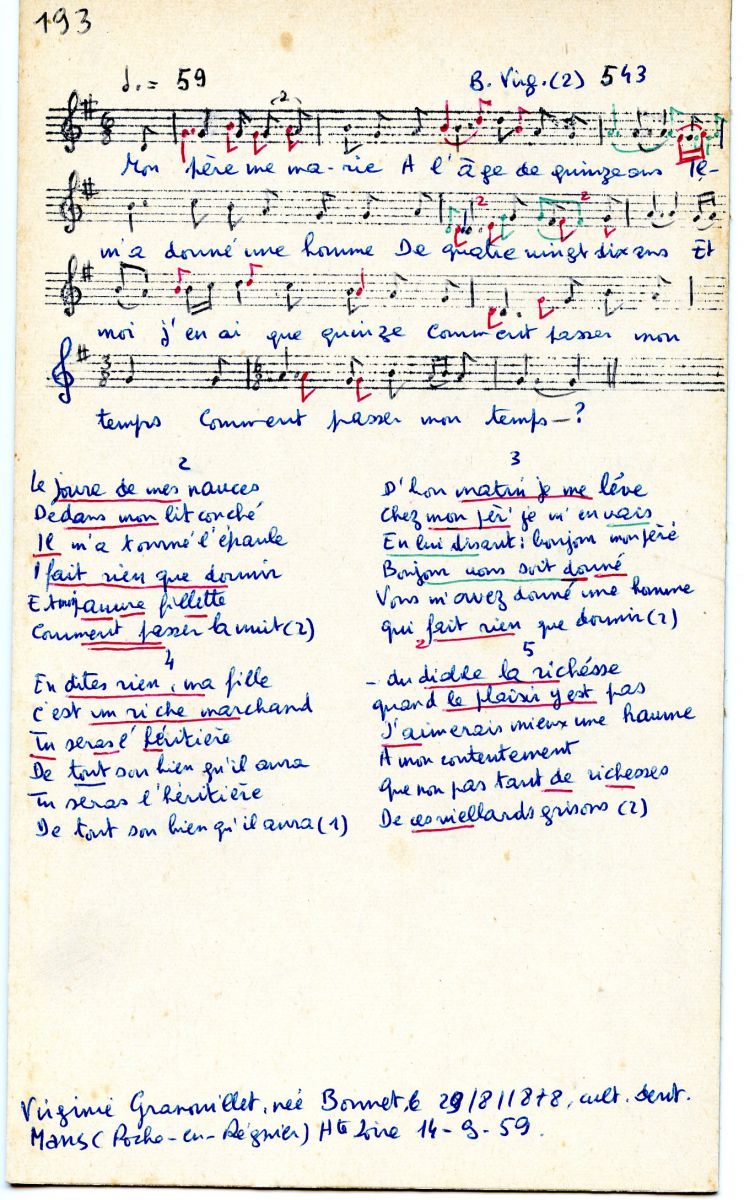 193
♩. = 59 B. Virg. (2) 543
Mon père me ma-rie A l'âge de quinze ans Il-
m'a donné une homme De quatre vingt dix ans Et
moi j'en ai que quinze Comment passer mon
temps Comment passer mon temps - ?
2
Le joure de mes nauces
Dedans mon lit couché
Il m'a tourné l'épaule
I fait rien que dormir
Et moi jaunre fillette
Comment passer la nuit (2)
3
D'bon matin je me lêve
Chez mon pèr' je m'en vais
En lui disant : bonjour mon pèré
Bonjour vous soit donné
Vous m'avez donné une homme
Qui fait rien que dormir (2)
4
En dites rien, ma fille
C'est un riche marchand
Tu seras l'héritière
De tout son bien qu'il aura
Tu seras l'héritière
De tout son bien qu'il aura (1)
5
- du diable la richésse
quand le plaisir y est pas
J'aimerais mieux une haume
A mon contentement
Que non pas tant de richesses
De ces viellards grisons (2)
Virginie Granouillet, née Bonnet, le 29/8/1878, cult. dent.
Mans (Roche-en-Régnier) Hte Loire 14-9-59.